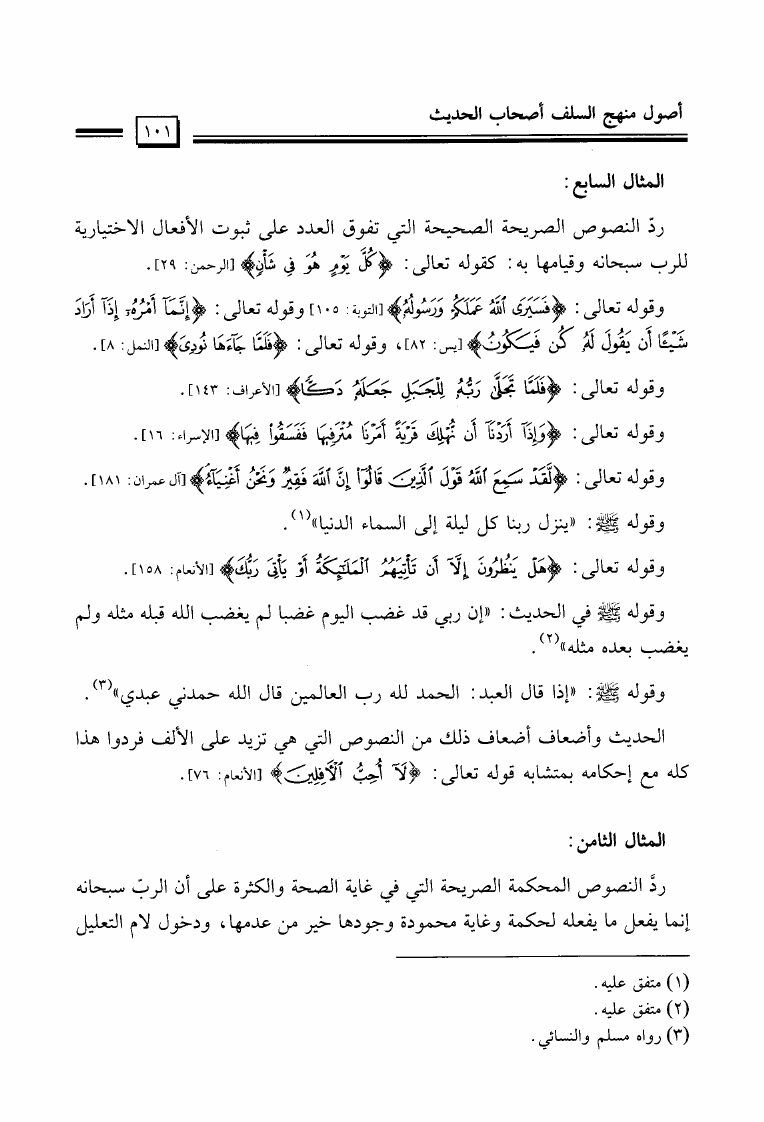 أصول منهج السلف أصحاب الحديث
١٠١
المثال السابع:
ردّ النصوص الصريحة الصحيحة التي تفوق العدد على ثبوت الأفعال الاختيارية
للرب سبحانه وقيامها به: كقوله تعالى: ﴿كُلَّ يَوْمٍ هُوَ فِي شَأْنٍ﴾ [الرحمن: ٢٩].
وقوله تعالى: ﴿فَسَيَرَى ٱللَّهُ عَمَلَكُمْ وَرَسُولُهُۥ﴾ [التوبة: ١٠٥] وقوله تعالى: ﴿إِنَّمَآ أَمْرُهُۥٓ إِذَآ أَرَادَ
شَيْـًٔا أَن يَقُولَ لَهُۥ كُن فَيَكُونُ﴾ [يس: ٨٢]، وقوله تعالى: ﴿فَلَمَّا جَآءَهَا نُودِىَ﴾ [النمل: ٨].
وقوله تعالى: ﴿فَلَمَّا تَجَلَّىٰ رَبُّهُۥ لِلْجَبَلِ جَعَلَهُۥ دَكًّا﴾ [الأعراف: ١٤٣].
وقوله تعالى: ﴿وَإِذَآ أَرَدْنَآ أَن نُّهْلِكَ قَرْيَةً أَمَرْنَا مُتْرَفِيهَا فَفَسَقُوا۟ فِيهَا﴾ [الإسراء: ١٦].
وقوله تعالى: ﴿لَّقَدْ سَمِعَ ٱللَّهُ قَوْلَ ٱلَّذِينَ قَالُوٓا۟ إِنَّ ٱللَّهَ فَقِيرٌ وَنَحْنُ أَغْنِيَآءُ﴾ [آل عمران: ١٨١].
وقوله ﷺ: «ينزل ربنا كل ليلة إلى السماء الدنيا»(١).
وقوله تعالى: ﴿هَلْ يَنظُرُونَ إِلَّآ أَن تَأْتِيَهُمُ ٱلْمَلَٰٓئِكَةُ أَوْ يَأْتِىَ رَبُّكَ﴾ [الأنعام: ١٥٨].
وقوله ﷺ في الحديث: «إن ربي قد غضب اليوم غضبا لم يغضب الله قبله مثله ولم
يغضب بعده مثله»(٢).
وقوله ﷺ: «إذا قال العبد: الحمد لله رب العالمين قال الله حمدني عبدي»(٣).
الحديث وأضعاف أضعاف ذلك من النصوص التي هي تزيد على الألف فردوا هذا
كله مع إحكامه بمتشابه قوله تعالى: ﴿لَآ أُحِبُّ ٱلْآفِلِينَ﴾ [الأنعام: ٧٦].
المثال الثامن:
ردَّ النصوص المحكمة الصريحة التي في غاية الصحة والكثرة على أن الربّ سبحانه
إنما يفعل ما يفعله لحكمة وغاية محمودة وجودها خير من عدمها، ودخول لام التعليل
(١) متفق عليه.
(٢) متفق عليه.
(٣) رواه مسلم والنسائي.